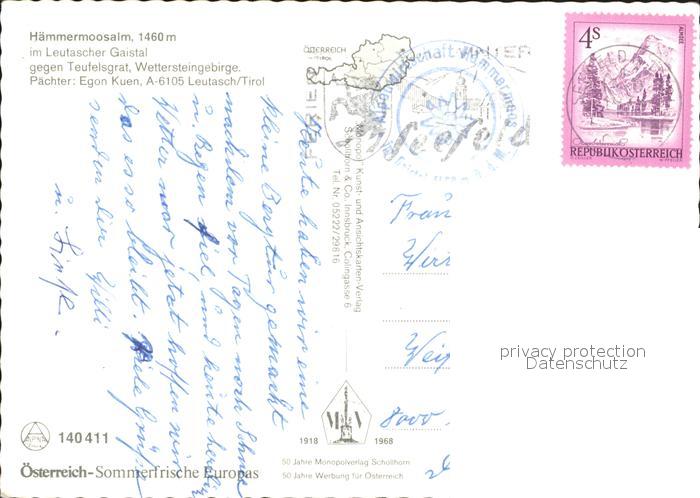 Hämmermoosalm, 1460 m
im Leutascher Gaistal
gegen Teufelsgrat, Wettersteingebirge.
Pächter: Egon Kuen, A-6105 Leutasch/Tirol
ÖSTERREICH
Seefeld
4s
REPUBLIK ÖSTERREICH
Monopol Kunst- und Ansichtskarten-Verlag
Schöllhorn & Co. Innsbruck, Colingasse 6
Tel. Nr. 05222/29816
Heute haben wir eine
kleine Bergtur gemacht
nachdem vor Tagen noch Schnee
u. Regen fiel, und heute herrlich
Wetter war jetzt hoffen wir
das es so bleibt. Viele Grüße
senden dir Gilli
u.
Frau
8000
privacy protection
Datenschutz
1918
1968
140 411
50 Jahre Monopolverlag Schöllhorn
50 Jahre Werbung für Österreich
Österreich-Sommerfrische Europas